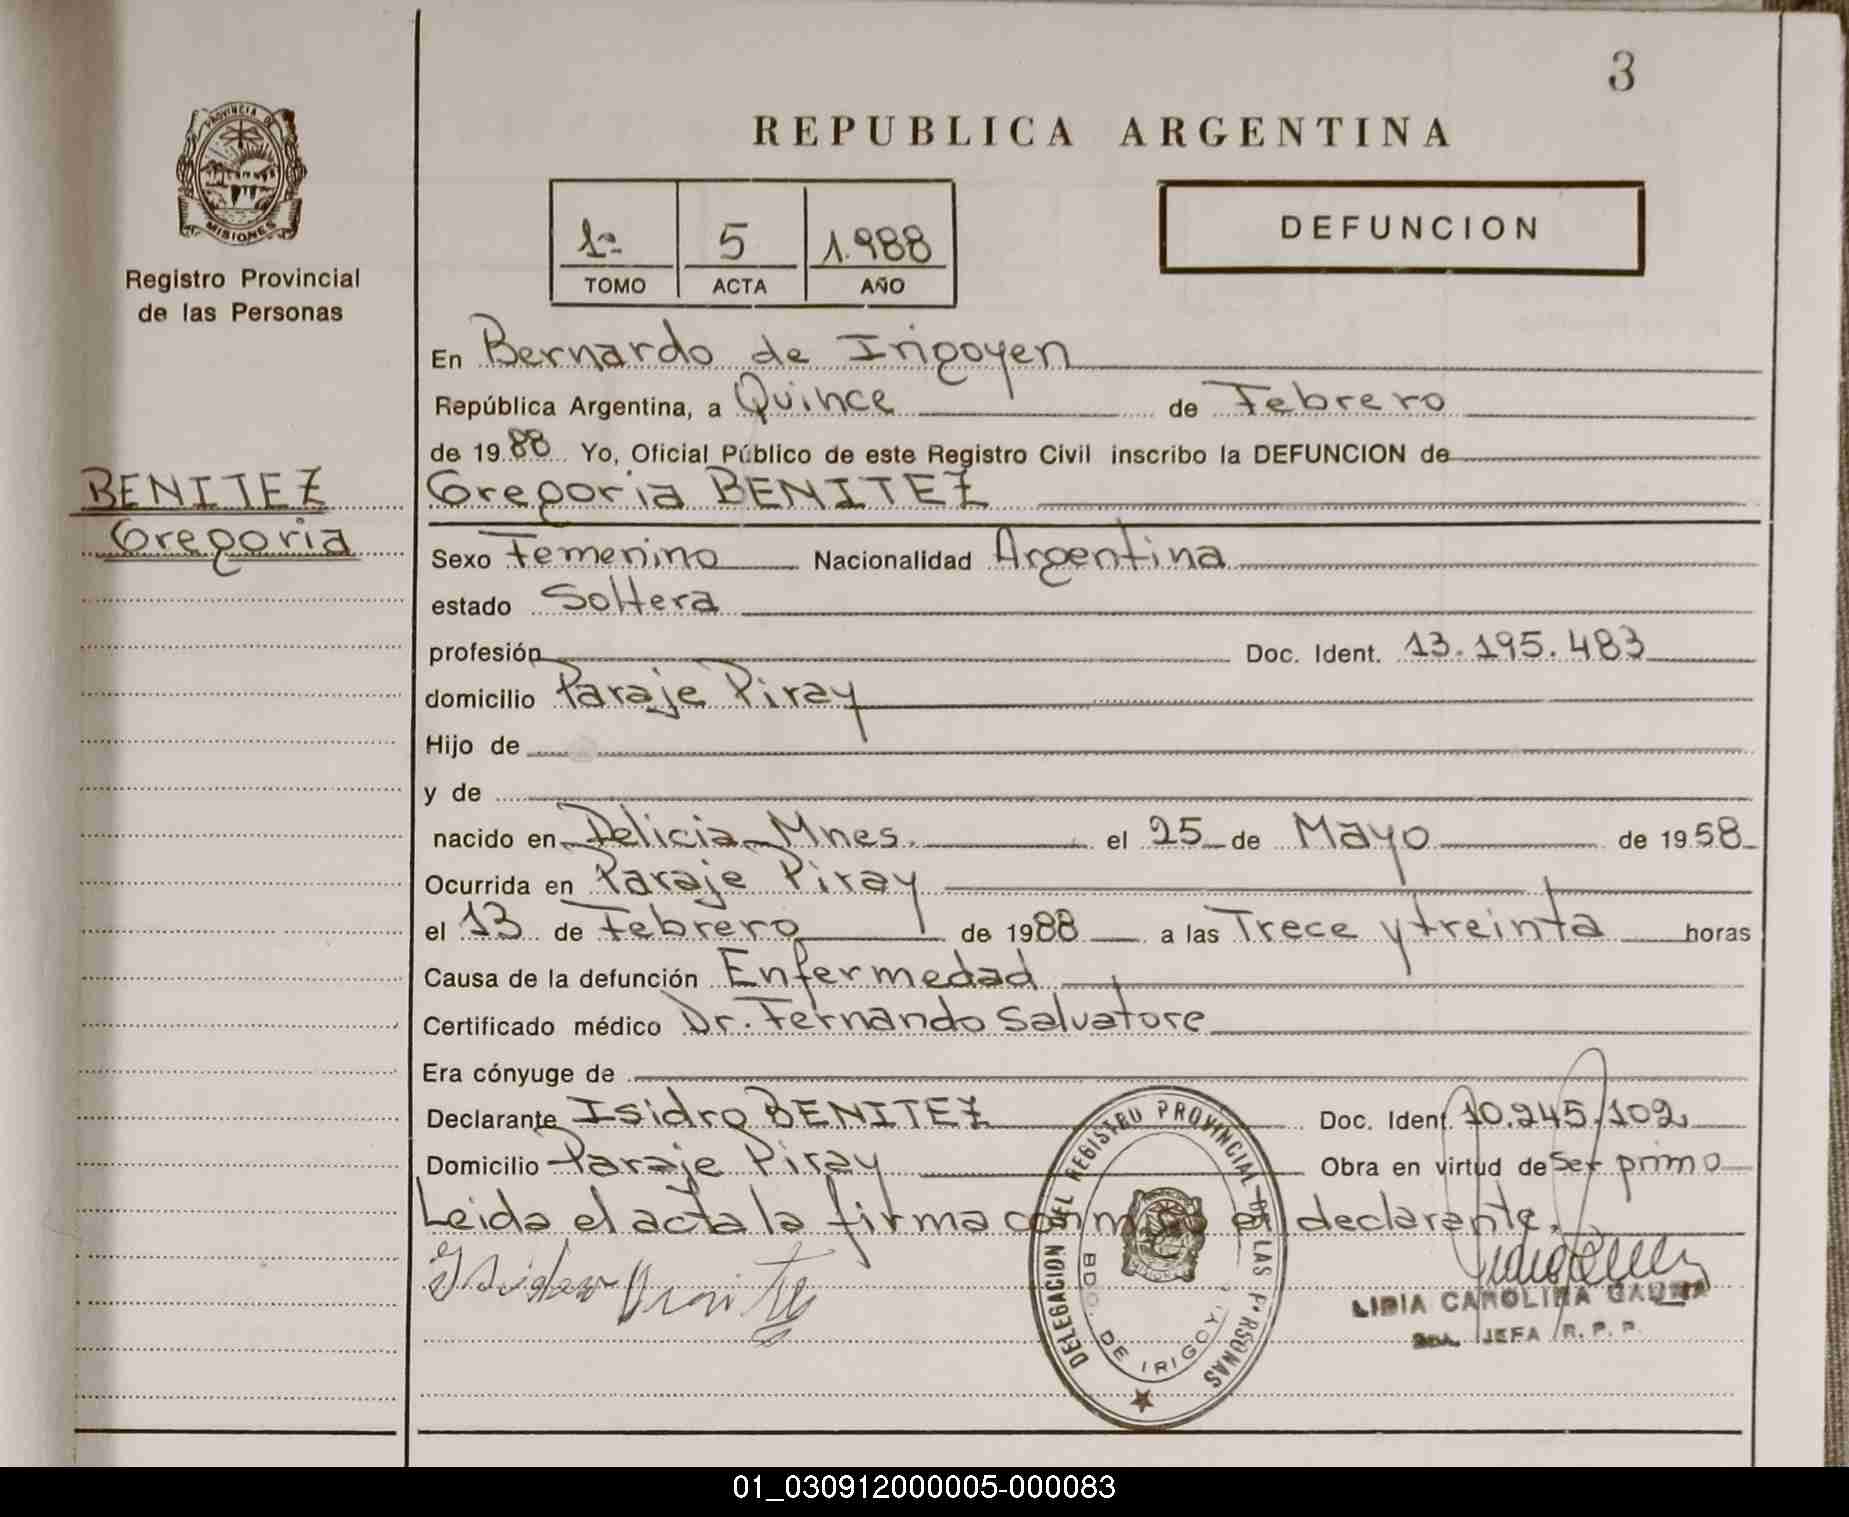 3
PROVINCIA DE
MISIONES
Registro Provincial
de las Personas
REPUBLICA ARGENTINA
1a 5 1.988
TOMO ACTA AÑO
DEFUNCION
En Bernardo de Irigoyen
República Argentina, a Quince de Febrero
de 19 88 Yo, Oficial Público de este Registro Civil inscribo la DEFUNCION de
BENITEZ
Gregoria
Gregoria BENITEZ
Sexo Femenino Nacionalidad Argentina
estado Soltera
profesión Doc. Ident. 13.195.483
domicilio Paraje Piray
Hijo de
y de
nacido en Delicia Mnes. el 25 de Mayo de 1958
Ocurrida en Paraje Piray
el 13 de Febrero de 1988 a las Trece y treinta horas
Causa de la defunción Enfermedad
Certificado médico Dr. Fernando Salvatore
Era cónyuge de
Declarante Isidro BENITEZ Doc. Ident. 10.245.102
Domicilio Paraje Piray Obra en virtud de Ser primo
Leida el acta la firma conmigo el declarante.
DELEGACION DEL REGISTRO PROVINCIAL DE LAS PERSONAS
BDO. DE IRIGOY
LIDIA CAROLINA
JEFA R. P. P.
01_030912000005-000083